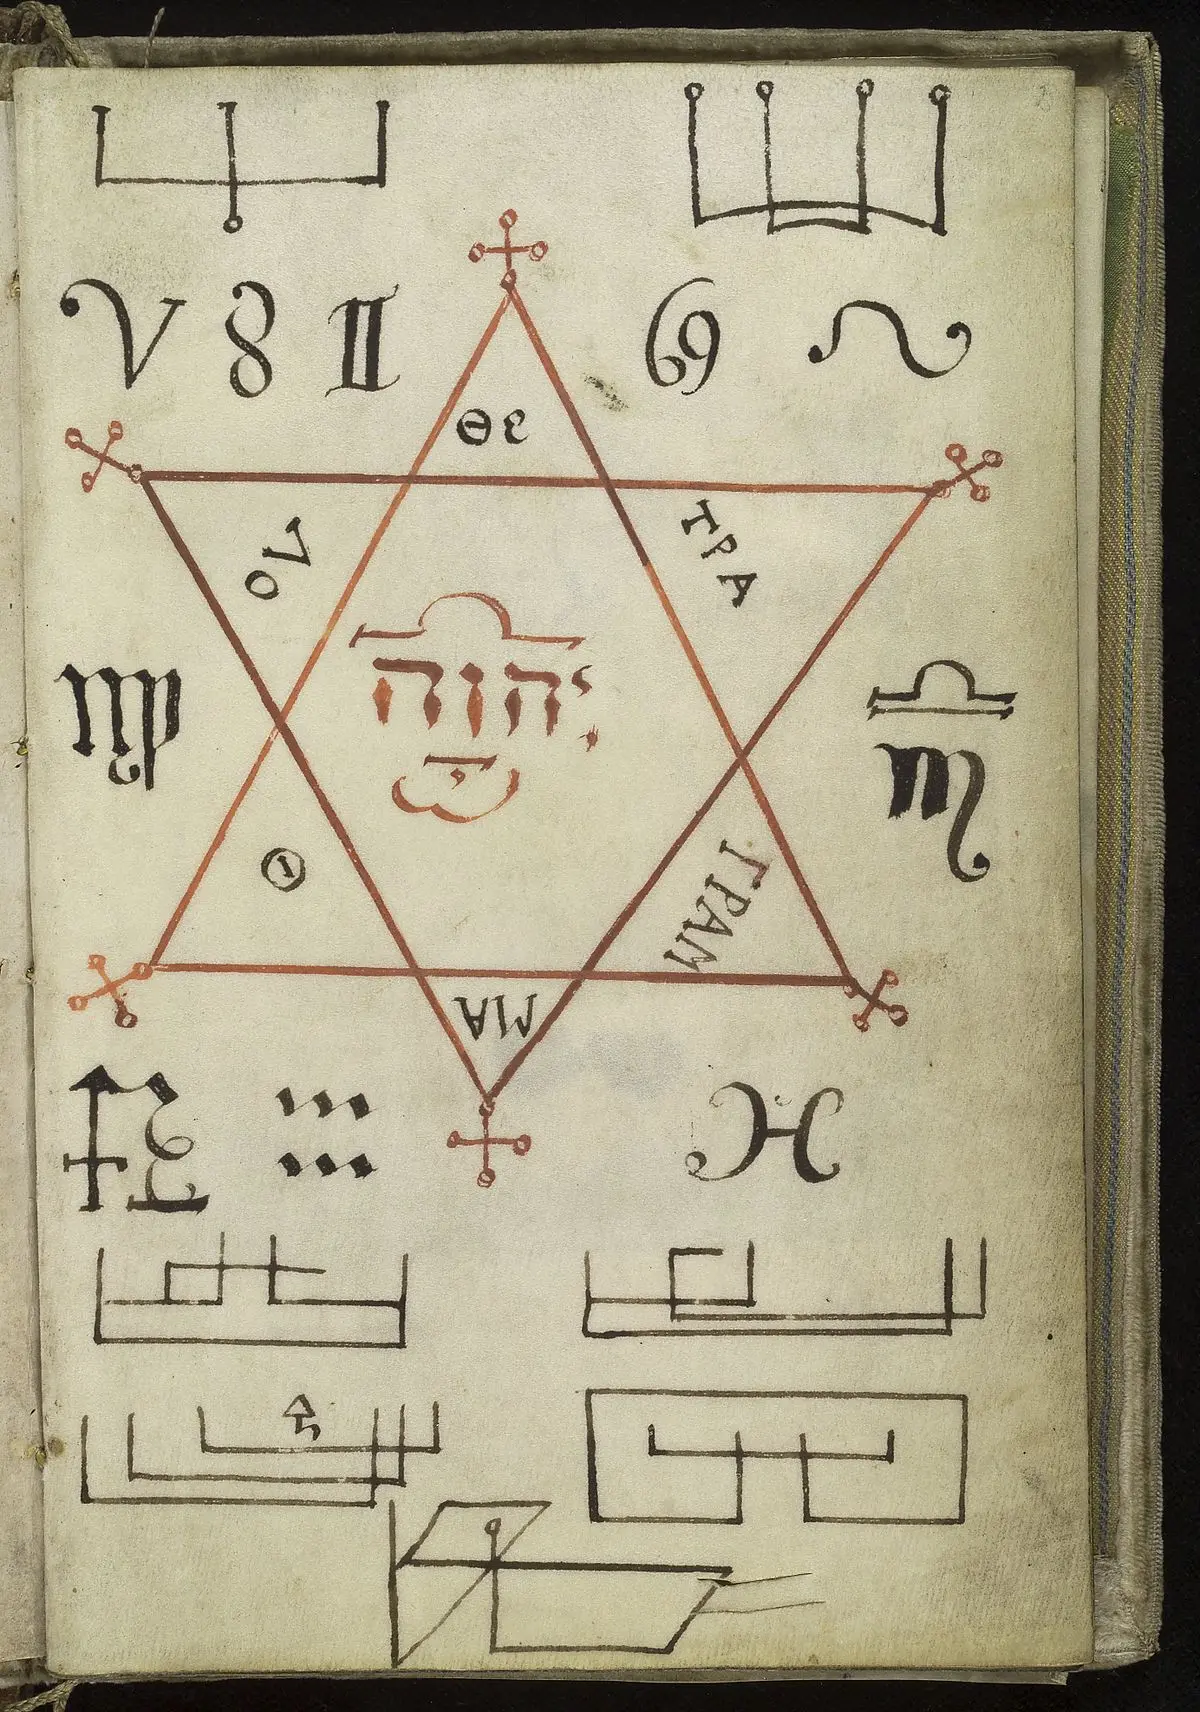 ♈ ♉ ♊ ♋ ♌
ΘΕ
ΛΟ
ΤΡΑ
יהוה
♍
♎
♏
Θ
ΓΡΑΜ
ΜΑ
♓